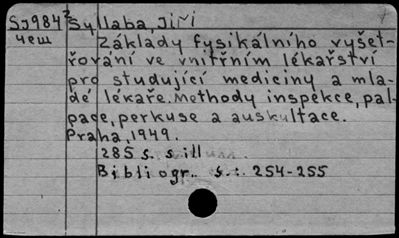 SJ984² Syllaba, Jiří
чеш Základy fysikálního vyšet-
řování ve vnitřním lékařství
pro studující mediciny a mla-
dé lékaře. Methody inspekce, pal-
pace, perkuse a auskultace.
Praha, 1949.
285 s. s illus.
Bibliogr. s.: 254-255